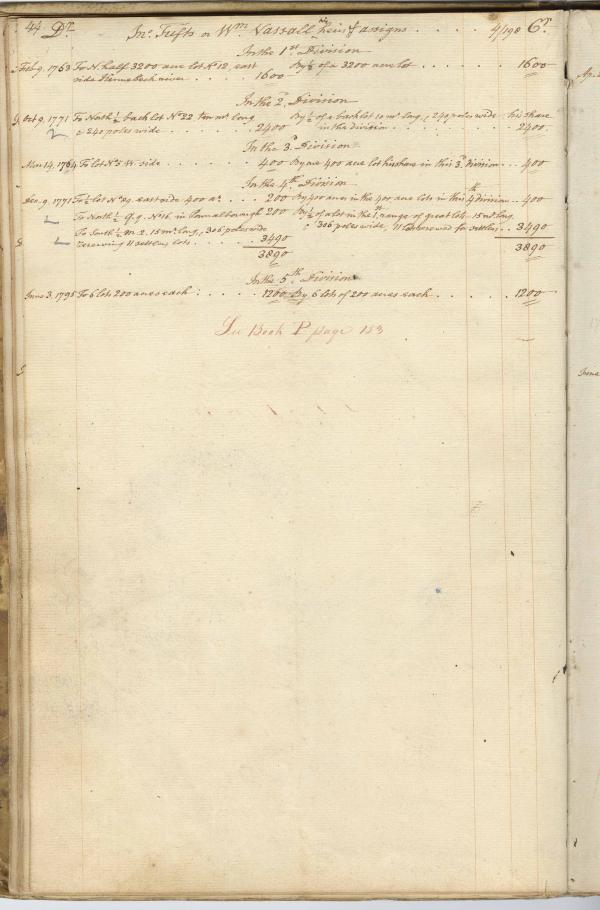 44 Dr. Jno. Tufts or Wm. Vassall heirs & assigns . . . . 4/198 Cr.
In the 1st Division
Feb 9. 1763 To N. half 3200 acre lot No 12, east By ½ of a 3200 acre lot . . . . 1600
side Kennebeck river . . . . 1600
In the 2d Division
Oct 9. 1771 To North ½ back lot No 22 ten ms. long By ½ of a back lot 10 ms. long, & 240 poles wide his share
& 240 poles wide . . . . 2400 in the division . . . . 2400
In the 3d Division
Mar 14. 1764 To lot No 5 W. side . . . . 400 By one 400 acre lot his share in this 3d division . . 400
In the 4th Division
Dec. 9. 1771 To ½ lot No 29. east side 400 as. . . 200 By 400 acres in the 400 acre lots in this 4th division . . 400
To North ½ No 16. in Connaborough 200 By ½ of a lot in the 1st range of great lots 15 ms long
To South ½ M. 2. 15 ms. long, 306 poles wide & 306 poles wide, 11 lots reserved for settlrs . . 3490
reserving 11 settlrs lots . . . . 3490 3890
3890
In the 5th Division
June 3. 1795 To 6 lots 200 acres each . . . . 1200 By 6 lots of 200 acres each . . . . 1200
See Book P page 153